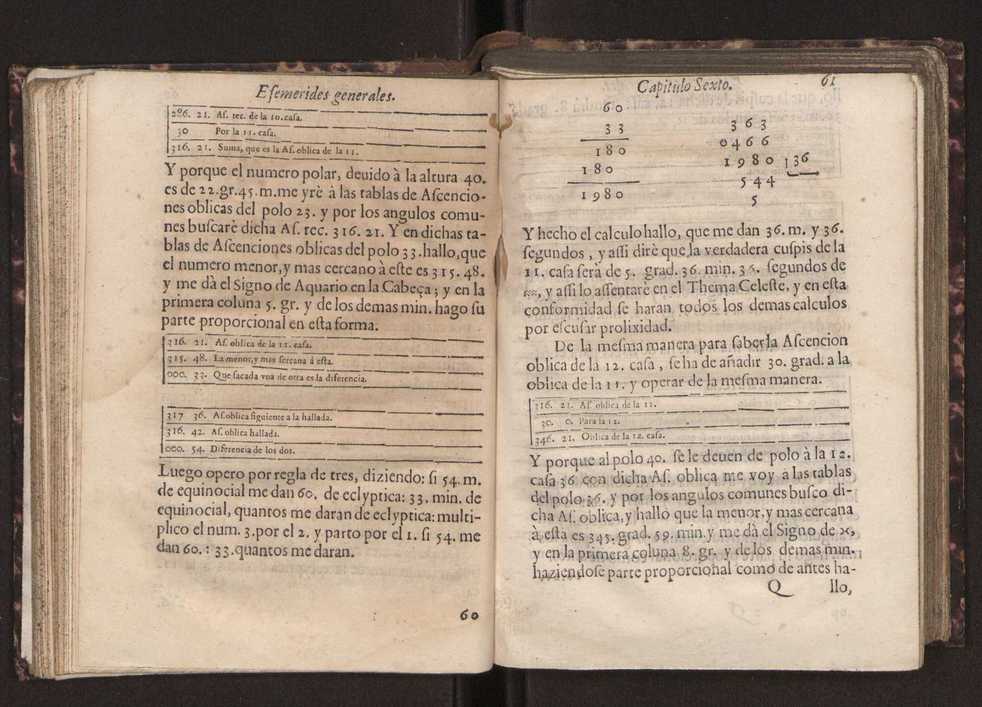 Eſemerides generales.
286. 21. Aſ. rec. de la 10. caſa.
30 Por la 11. caſa.
316. 21. Suma, que es la Aſ. oblica de la 11.
Y porque el numero polar, deuido à la altura 40.
es de 22. gr. 45. m. me yrè à las tablas de Aſcencio-
nes oblicas del polo 23. y por los angulos comu-
nes buſcarè dicha Aſ. rec. 316. 21. Y en dichas ta-
blas de Aſcenciones oblicas del polo 33. hallo, que
el numero menor, y mas cercano à eſte es 315. 48.
y me dà el Signo de Aquario en la Cabeça; y en la
primera coluna 5. gr. y de los demas min. hago ſu
parte proporcional en eſta forma.
316. 21. Aſ. oblica de la 11. caſa.
315. 48. La menor, y mas sercana á eſta.
000. 33. Que ſacada vna de otra es la diferencia.
317 36. Aſ. oblica ſiguiente a la hallada.
316. 42. Aſ. oblica hallada.
000. 54. Diferencia de los dos.
Luego opero por regla de tres, diziendo: ſi 54. m.
de equinocial me dan 60. de eclyptica: 33. min. de
equinocial, quantos me daran de eclyptica: multi-
plico el num. 3. por el 2. y parto por el 1. ſi 54. me
dan 60. : 33. quantos me daran.
60
Capitulo Sexto. 61
60
33
180
180
1980
363
0466
1980 36
544
5
Y hecho el calculo hallo, que me dan 36. m. y 36.
ſegundos, y aſſi dirè que la verdadera cuſpis de la
11. caſa ſerà de 5. grad. 36. min. 36. ſegundos de
♒, y aſſi lo aſſentarè en el Thema Celeſte, y en eſta
conformidad ſe haran todos los demas calculos
por eſcuſar prolixidad.
De la meſma manera para ſaber la Aſcencion
oblica de la 12. caſa, ſe ha de añadir 30. grad. a la
oblica de la 11. y operar de la meſma manera.
316. 21. Aſ oblica de la 11.
30. 0. Para la 12.
346. 21. Oblica de la 12. caſa.
Y porque al polo 40. ſe le deuen de polo à la 12.
caſa 36. con dicha Aſ. oblica me voy a las tablas
del polo 36. y por los angulos comunes buſco di-
cha Aſ. oblica, y hallo que la menor, y mas cercana
à eſta es 345. grad. 59. min. y me dà el Signo de ♓,
y en la primera coluna 8. gr. y de los demas min.
haziendoſe parte proporcional como de antes ha-
Q llo,